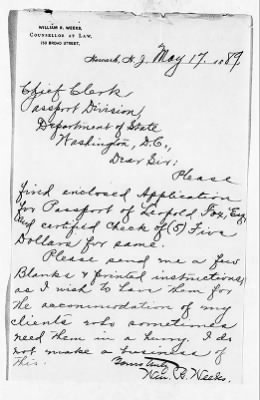 WILLIAM R. WEEKS,
COUNSELLOR AT LAW,
Newark, N. J. May 17, 1889
Chief Clerk
Passport Division,
Department of State
Washington, D.C.,
Dear Sir:
Please
find enclosed Application
for Passport of Leopold Fox, Esq.
and certified check of (5) Five
Dollars for same.
Please send me a few
Blanks & printed instructions,
as I wish to have them for
the accommodation of my
clients who sometimes
need them in a hurry. I do
not make a business of
this.
Yours truly
Wm. R. Weeks.